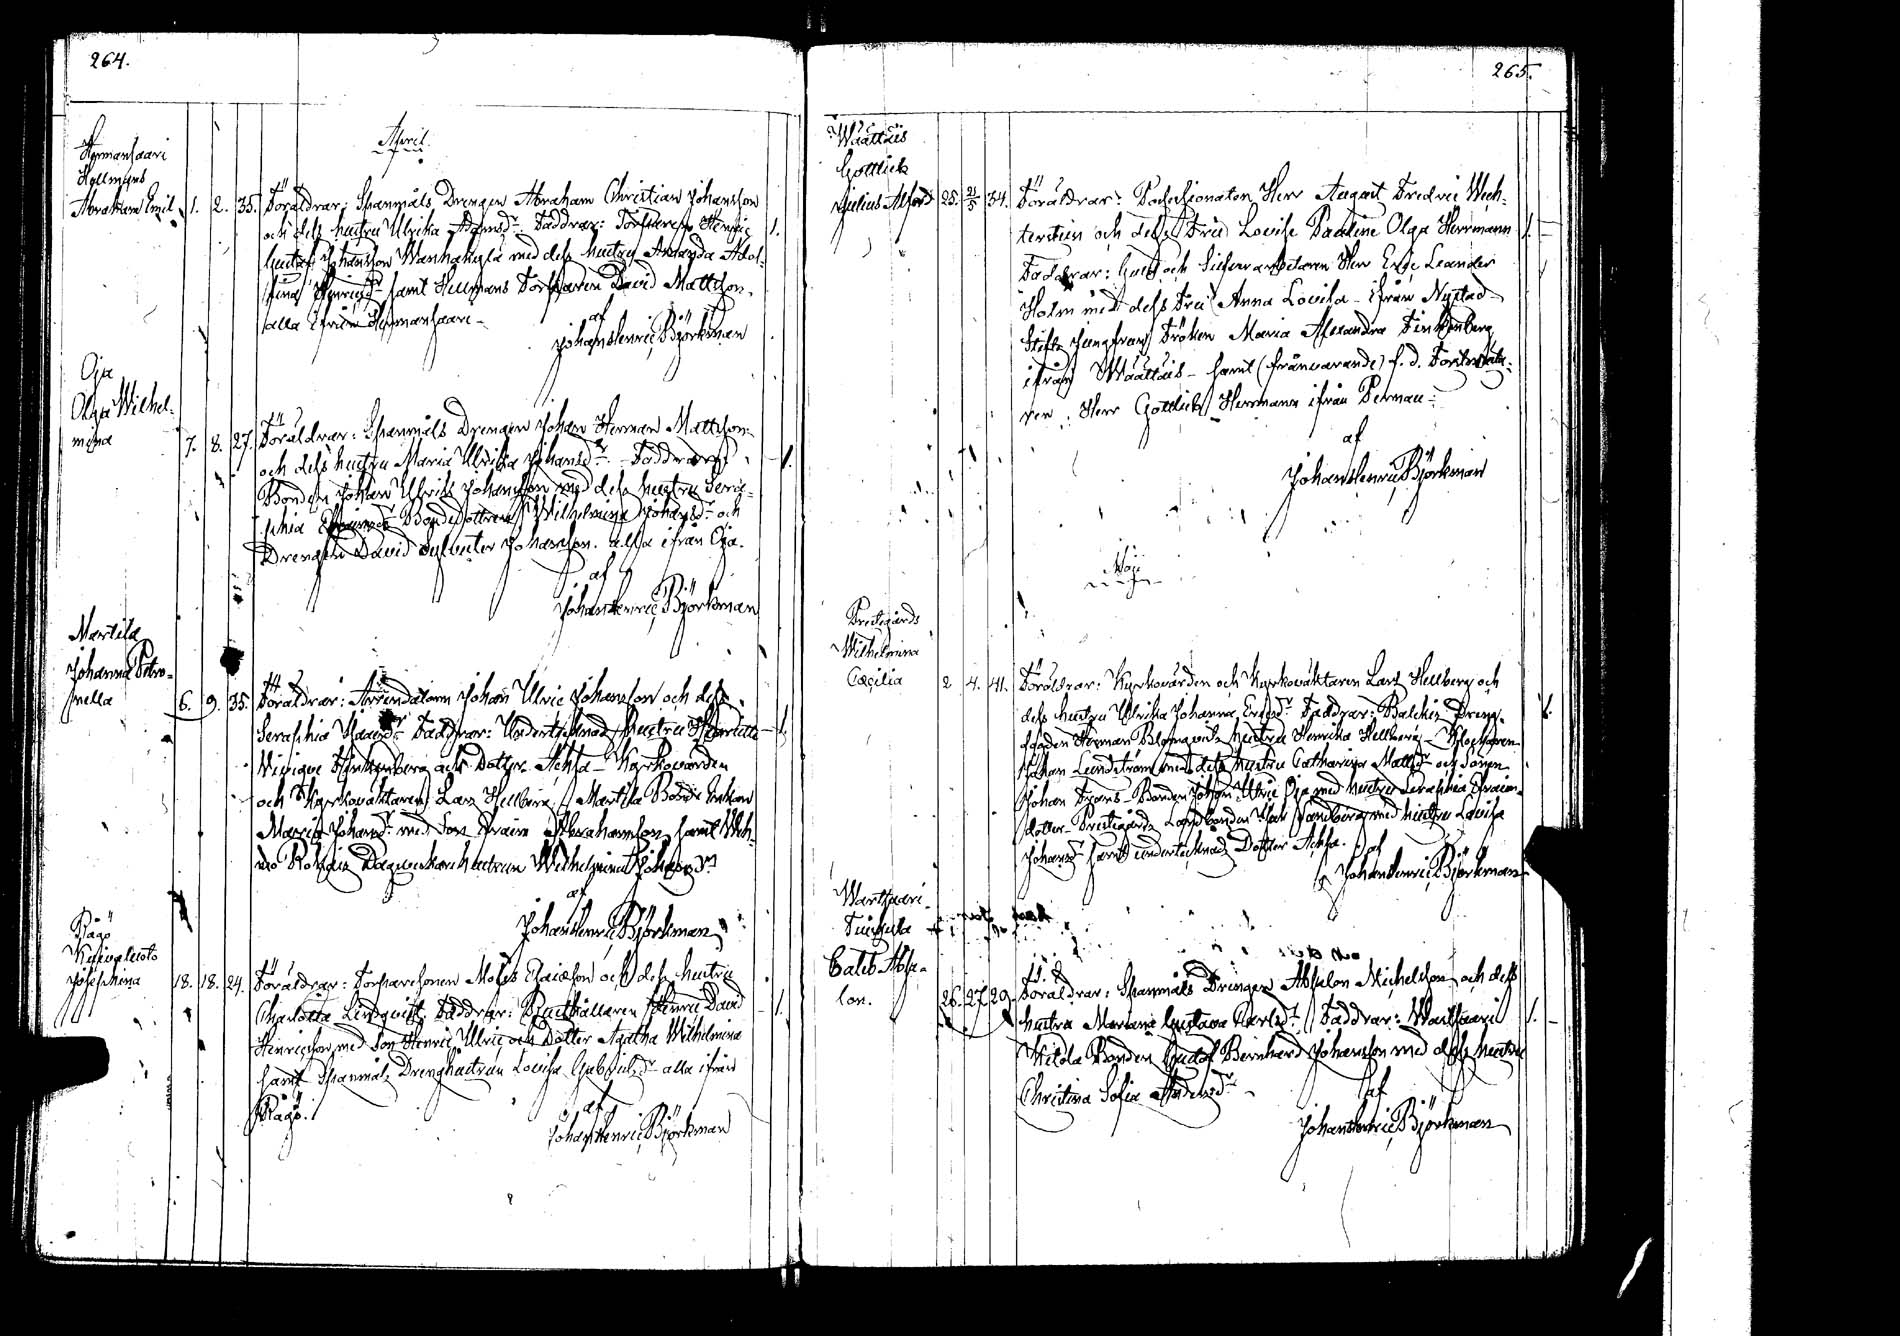 264.
April
Hermansaari
Hellmans
Abraham Emil 1. 2. 35. Föräldrar: Spanmåls Drengen Abraham Christian Johansson
och dess hustru Ulrika Adamsdr. Faddrar: Torparen Henric
Gustaf Johansson Wanhakylä med dess hustru Amanda Adol-
fina Henricsdr samt Hellmans Torparen David Mattsson,
alla ifrån Hermansaari
af
Johan Henric Björkman
Oja
Olga Wilhel-
mina 7. 8. 27. Föräldrar: Spanmåls Drengen Johan Herman Mattsson
och dess hustru Maria Ulrika Johansdr. Faddrar:
Bonden Johan Ulrik Johansson med dess hustru Sera-
phia Bondedottren Wilhelmina Johansdr och
Drengen David Sylvester Johansson. alla ifrån Oja.
af
Johan Henric Björkman
Martila
Johanna Petro-
nella 6. 9. 35. Föräldrar: Arrendatorn Johan Ulric Johansson och dess
Seraphia Faddrar: Undertecknad hustru Henriette
Finkenberg och Dotter Achsa Kyrkovärden
och Kyrkovaktaren Lars Hellberg, Martila Bonde Enkan
Maria Johansdr med Son Efraim Abrahamsson samt Weh-
mo Rohois Dagsverkare hustrun Wilhelmina Johansdr
af
Johan Henric Björkman
Rågö
Josephina 18. 18. 24. Föräldrar: Torparesonen Moses Isaicson och dess hustru
Charlotta Lindqvist. Faddrar: Rusthållaren Henric David
Henricsson med Son Henric Ulric och Dotter Agatha Wilhelmina
samt Spanmåls Drenghustrun Lovisa Gabrielsdr alla ifrån
Rågö.
af
Johan Henric Björkman
265.
Wäättäis
Gottlieb
Julius Alfred 25. 21/5 34. Föräldrar: Possessionaten Herr August Fredric Wech-
terstein och dess Fru Lovise Pauline Olga Herrmann
Faddrar: Guld och Silfverarbetaren Herr Eric Leander
Holm med dess Fru Anna Lovisa ifrån Nystad
Stifts Jungfrun Fröken Maria Alexandra Finkenberg
ifrån Wäättäis samt (frånvarande) f. d.
Herr Gottlieb Herrmann ifrån Pernau
af
Johan Henric Björkman
Maji
Prestgårds
Wilhelmina
Cæcilia 2 4. 41. Föräldrar: Kyrkovärden och Kyrkovaktaren Lars Hellberg och
dess hustru Ulrika Johanna Ericsdr Faddrar: Balckis
Herman Blomqvists hustru Henrika Hellberg Klockaren
Johan Lundström med dess hustru Catharina Mattsdr och Sonen
Johan Frans Bonden Johan Ulric Oja med hustru Seraphia Efraims
dotter Prestgårds Landbonden Isak Sandberg med hustru Lovisa
Johansdr samt undertecknads Dotter Achsa.
af
Johan Henric Björkman
Wartsaari
Caleb Absa-
lon. 26. 27. 29. Föräldrar: Spanmåls Drengen Absalon Michelsson och dess
hustru Mariana Gustava Carlsdr Faddrar: Wartsaari
Bonden Gustaf Bernhard Johansson med dess hustru
Christina Sofia Andersdr
af
Johan Henric Björkman